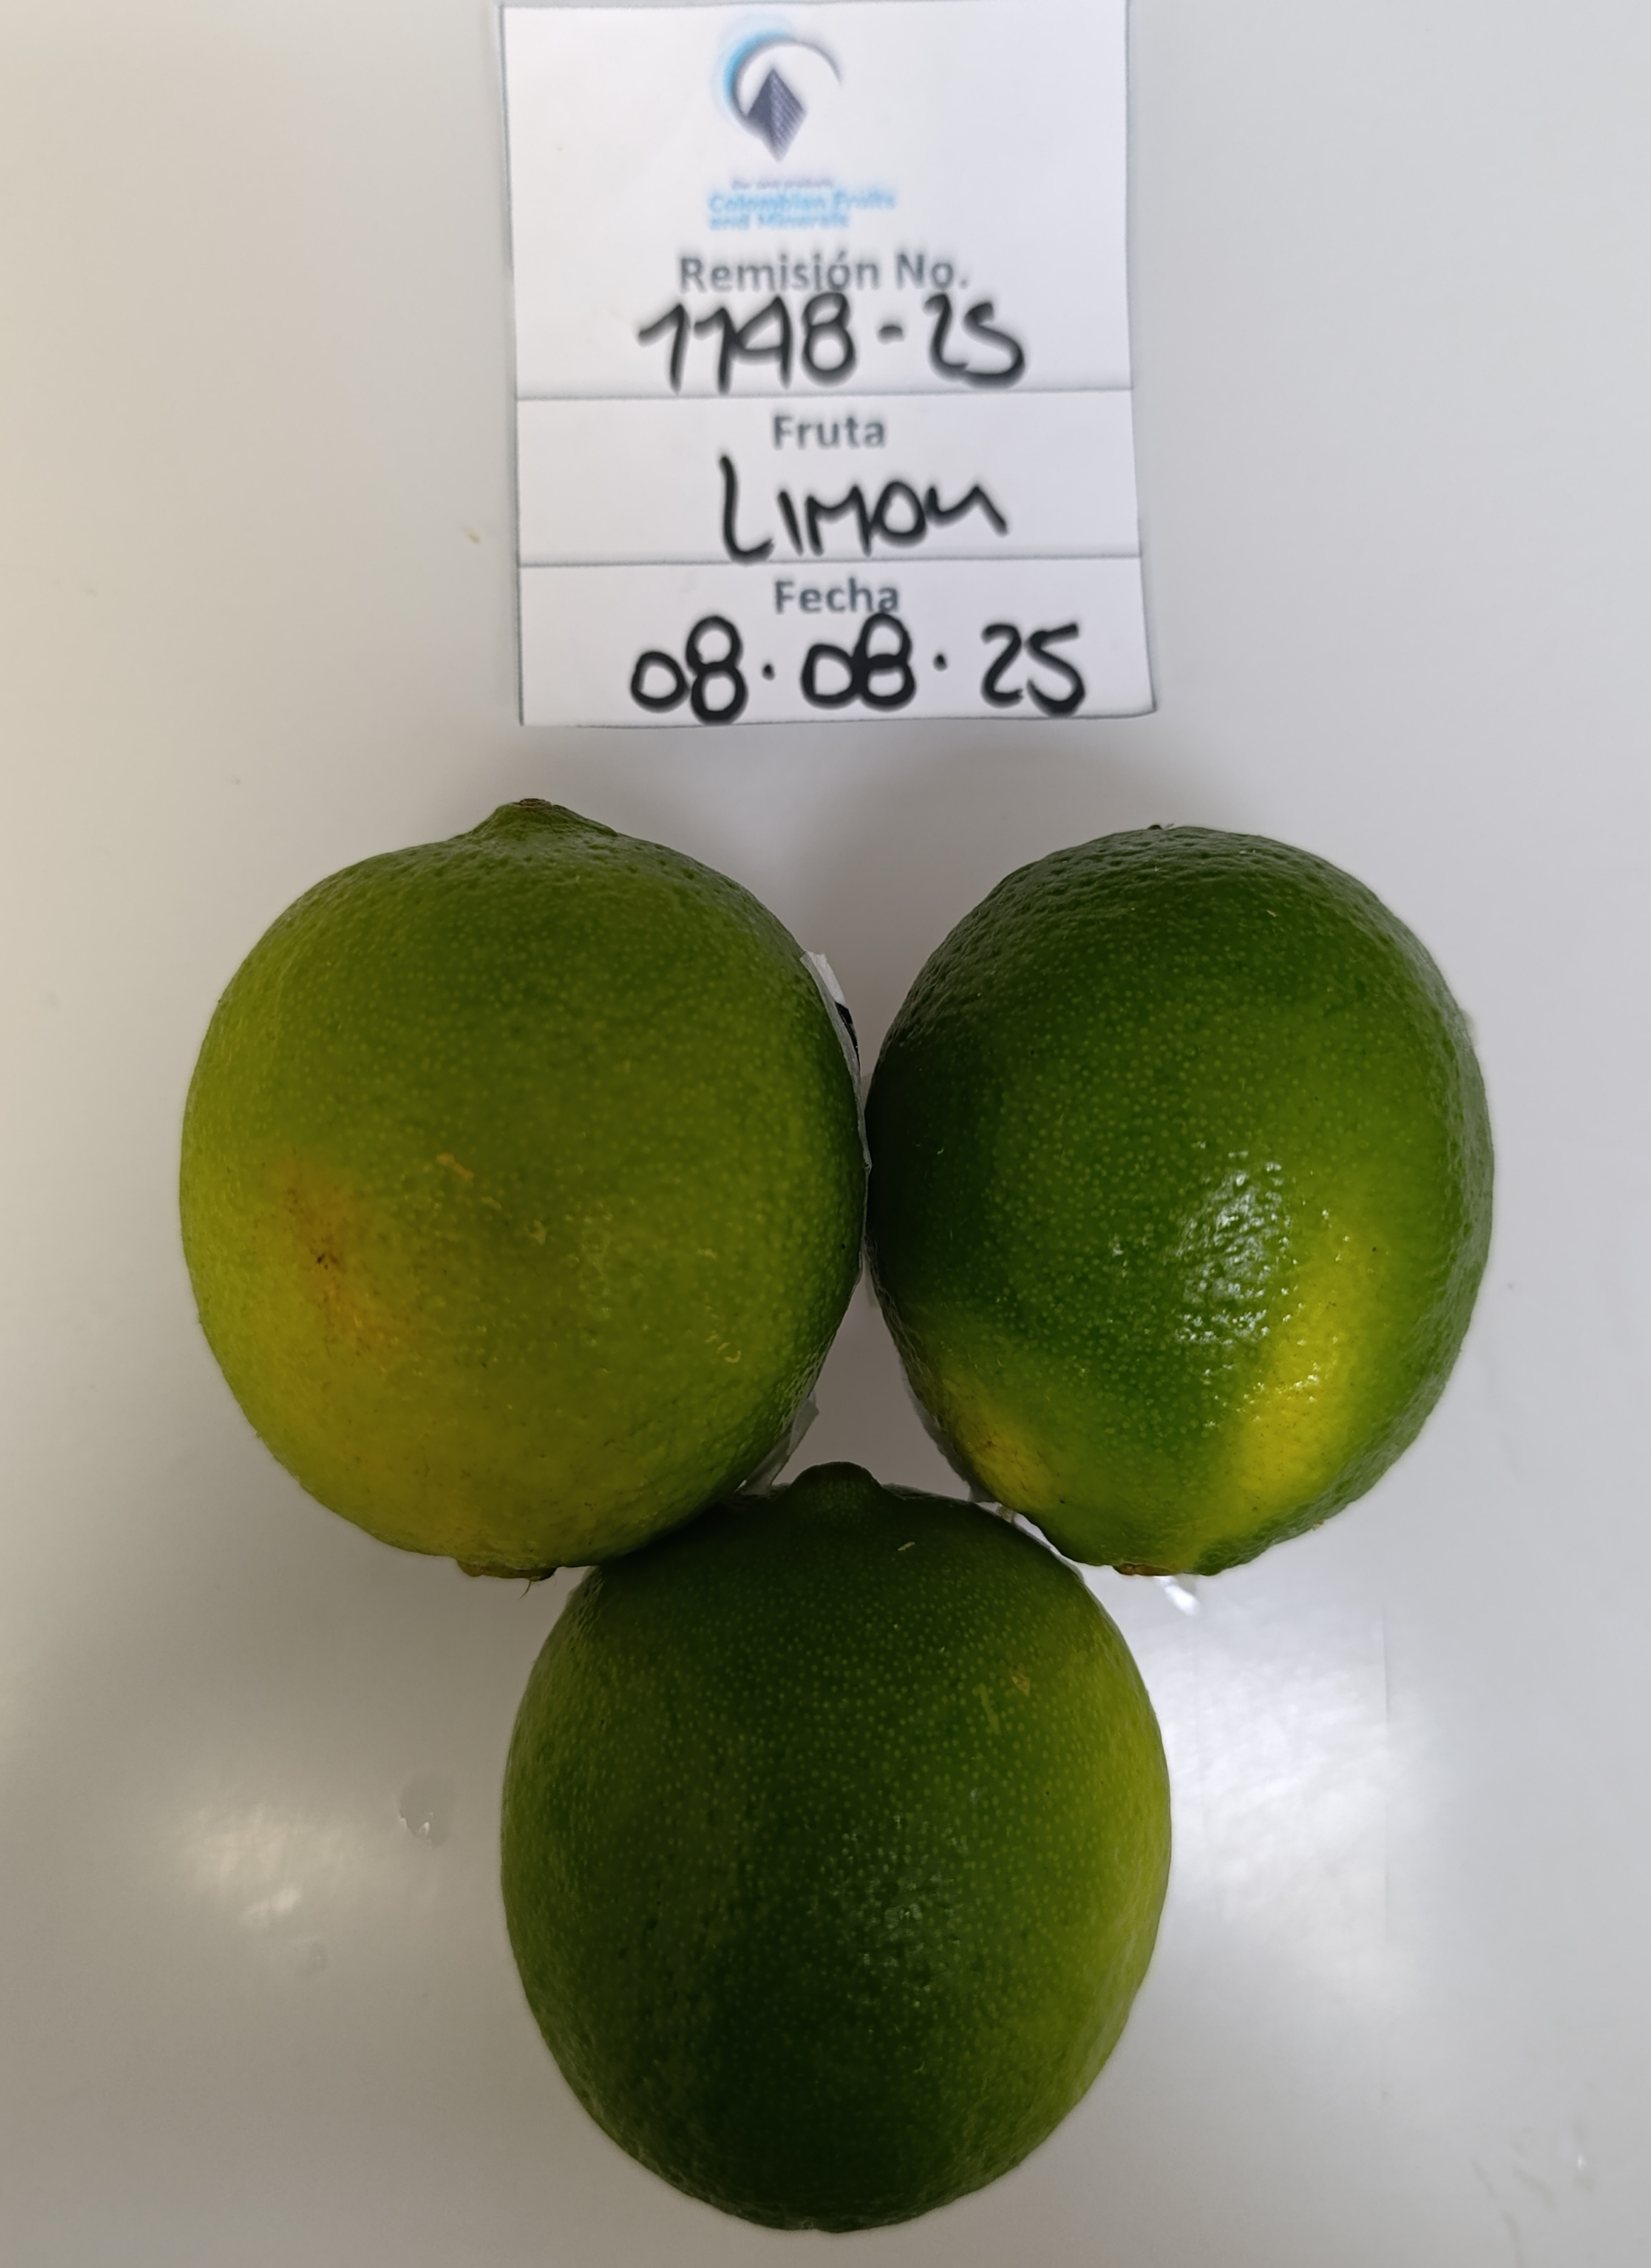 Colombian Fruits
and Minerals
Remisión No.
1148-25
Fruta
LIMON
Fecha
08.08.25